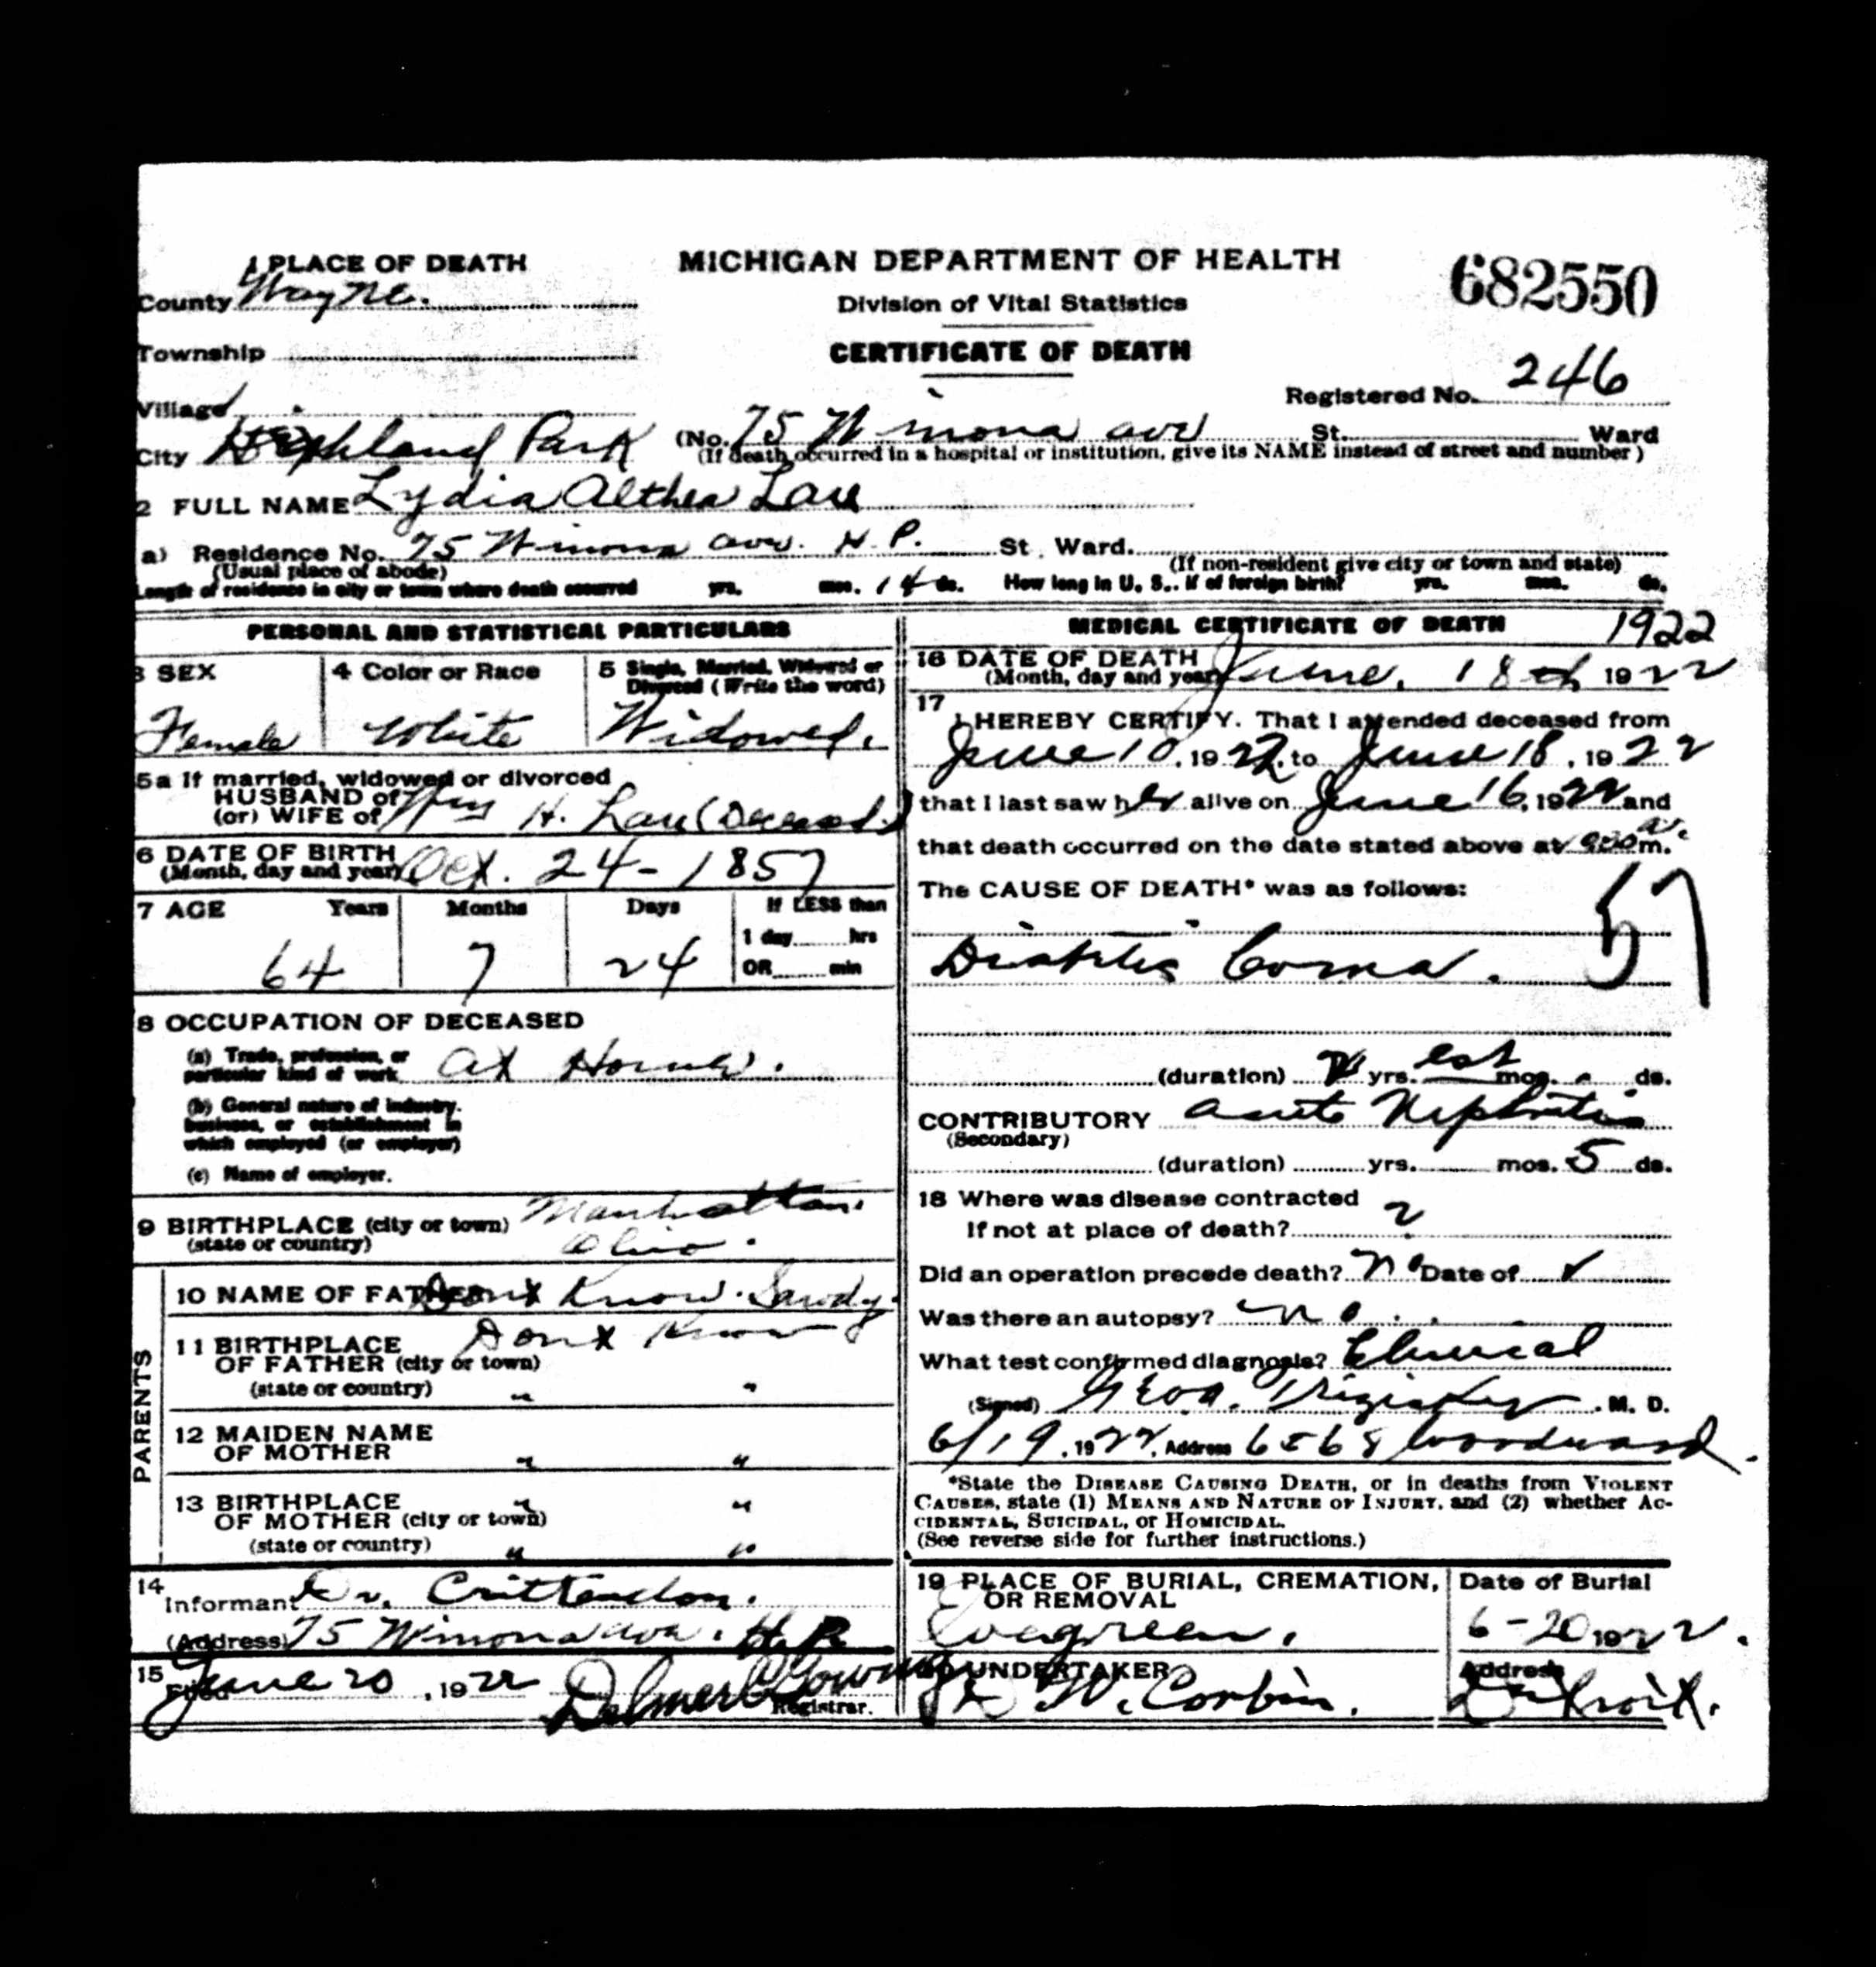 1 PLACE OF DEATH
MICHIGAN DEPARTMENT OF HEALTH
682550
County Wayne.
Division of Vital Statistics
Township
CERTIFICATE OF DEATH
Registered No. 246
Village
City Highland Park (No. 75 Winona ave St. Ward
(If death occurred in a hospital or institution, give its NAME instead of street and number)
2 FULL NAME Lydia Althea
a) Residence No. 75 Winona ave. H. P. St. Ward.
(Usual place of abode) (If non-resident give city or town and state)
Length of residence in city or town where death occurred yrs. mos. 14 ds. How long in U. S., if of foreign birth? yrs. mos. ds.
PERSONAL AND STATISTICAL PARTICULARS
3 SEX
4 Color or Race
5 Single, Married, Widowed or
Divorced (Write the word)
Female
White
Widowed.
5a If married, widowed or divorced
HUSBAND of
(or) WIFE of Wm H.
6 DATE OF BIRTH
(Month, day and year) Oct. 24 - 1857
7 AGE Years Months Days If LESS than
1 day hrs
OR min
64 7 24
8 OCCUPATION OF DECEASED
(a) Trade, profession, or
particular kind of work at Home.
(b) General nature of industry,
business, or establishment in
which employed (or employer)
(c) Name of employer.
9 BIRTHPLACE (city or town) Manhattan.
(state or country) Ohio.
PARENTS
10 NAME OF FATHER Dont Know.
11 BIRTHPLACE Dont Know
OF FATHER (city or town)
(state or country) " "
12 MAIDEN NAME
OF MOTHER " "
13 BIRTHPLACE " "
OF MOTHER (city or town)
(state or country) " "
14
Informant Dr. Crittendon.
(Address) 75 Winona ave. H. P.
15
Filed June 20, 1922
Registrar.
MEDICAL CERTIFICATE OF DEATH 1922
16 DATE OF DEATH
(Month, day and year) June. 18th 1922
17
I HEREBY CERTIFY. That I attended deceased from
June 10, 1922, to June 18, 1922
that I last saw her alive on June 16, 1922 and
that death occurred on the date stated above at 900 a. m.
The CAUSE OF DEATH* was as follows:
57
Diabetis Coma.
(duration) yrs. est mos. ds.
CONTRIBUTORY acute Nephritis
(Secondary)
(duration) yrs. mos. 5 ds.
18 Where was disease contracted
If not at place of death? ?
Did an operation precede death? no Date of
Was there an autopsy? no.
What test confirmed diagnosis? Clinical
(Signed) M. D.
6/19, 1922, Address 6568 Woodward.
*State the DISEASE CAUSING DEATH, or in deaths from VIOLENT
CAUSES, state (1) MEANS AND NATURE OF INJURY, and (2) whether AC-
CIDENTAL, SUICIDAL, or HOMICIDAL.
(See reverse side for further instructions.)
19 PLACE OF BURIAL, CREMATION,
OR REMOVAL
Date of Burial
Evergreen.
6-20 1922.
20 UNDERTAKER
Address
W. Corbin.
Detroit.